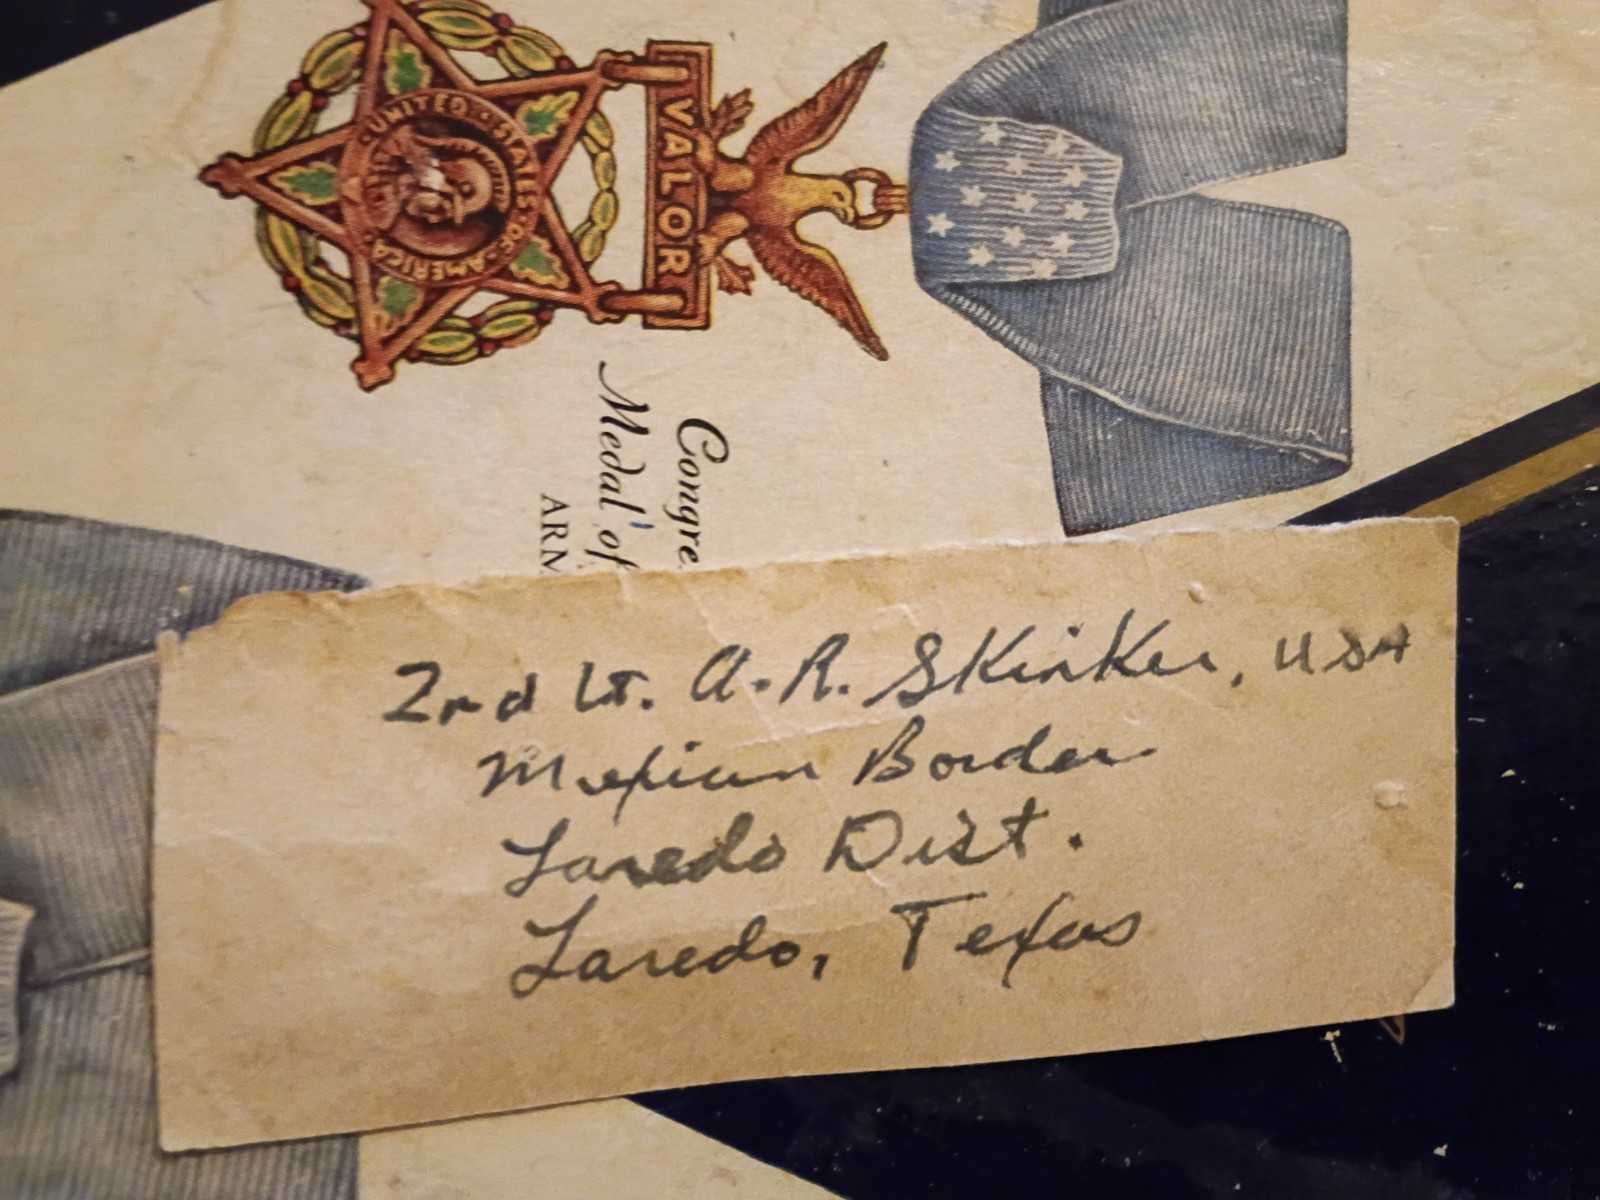 UNITED · STATES · OF · AMERICA
VALOR
Congre
Medal of
ARM
2nd Lt. A. R. Skinker, USA
Mexican Border
Laredo Dist.
Laredo, Texas